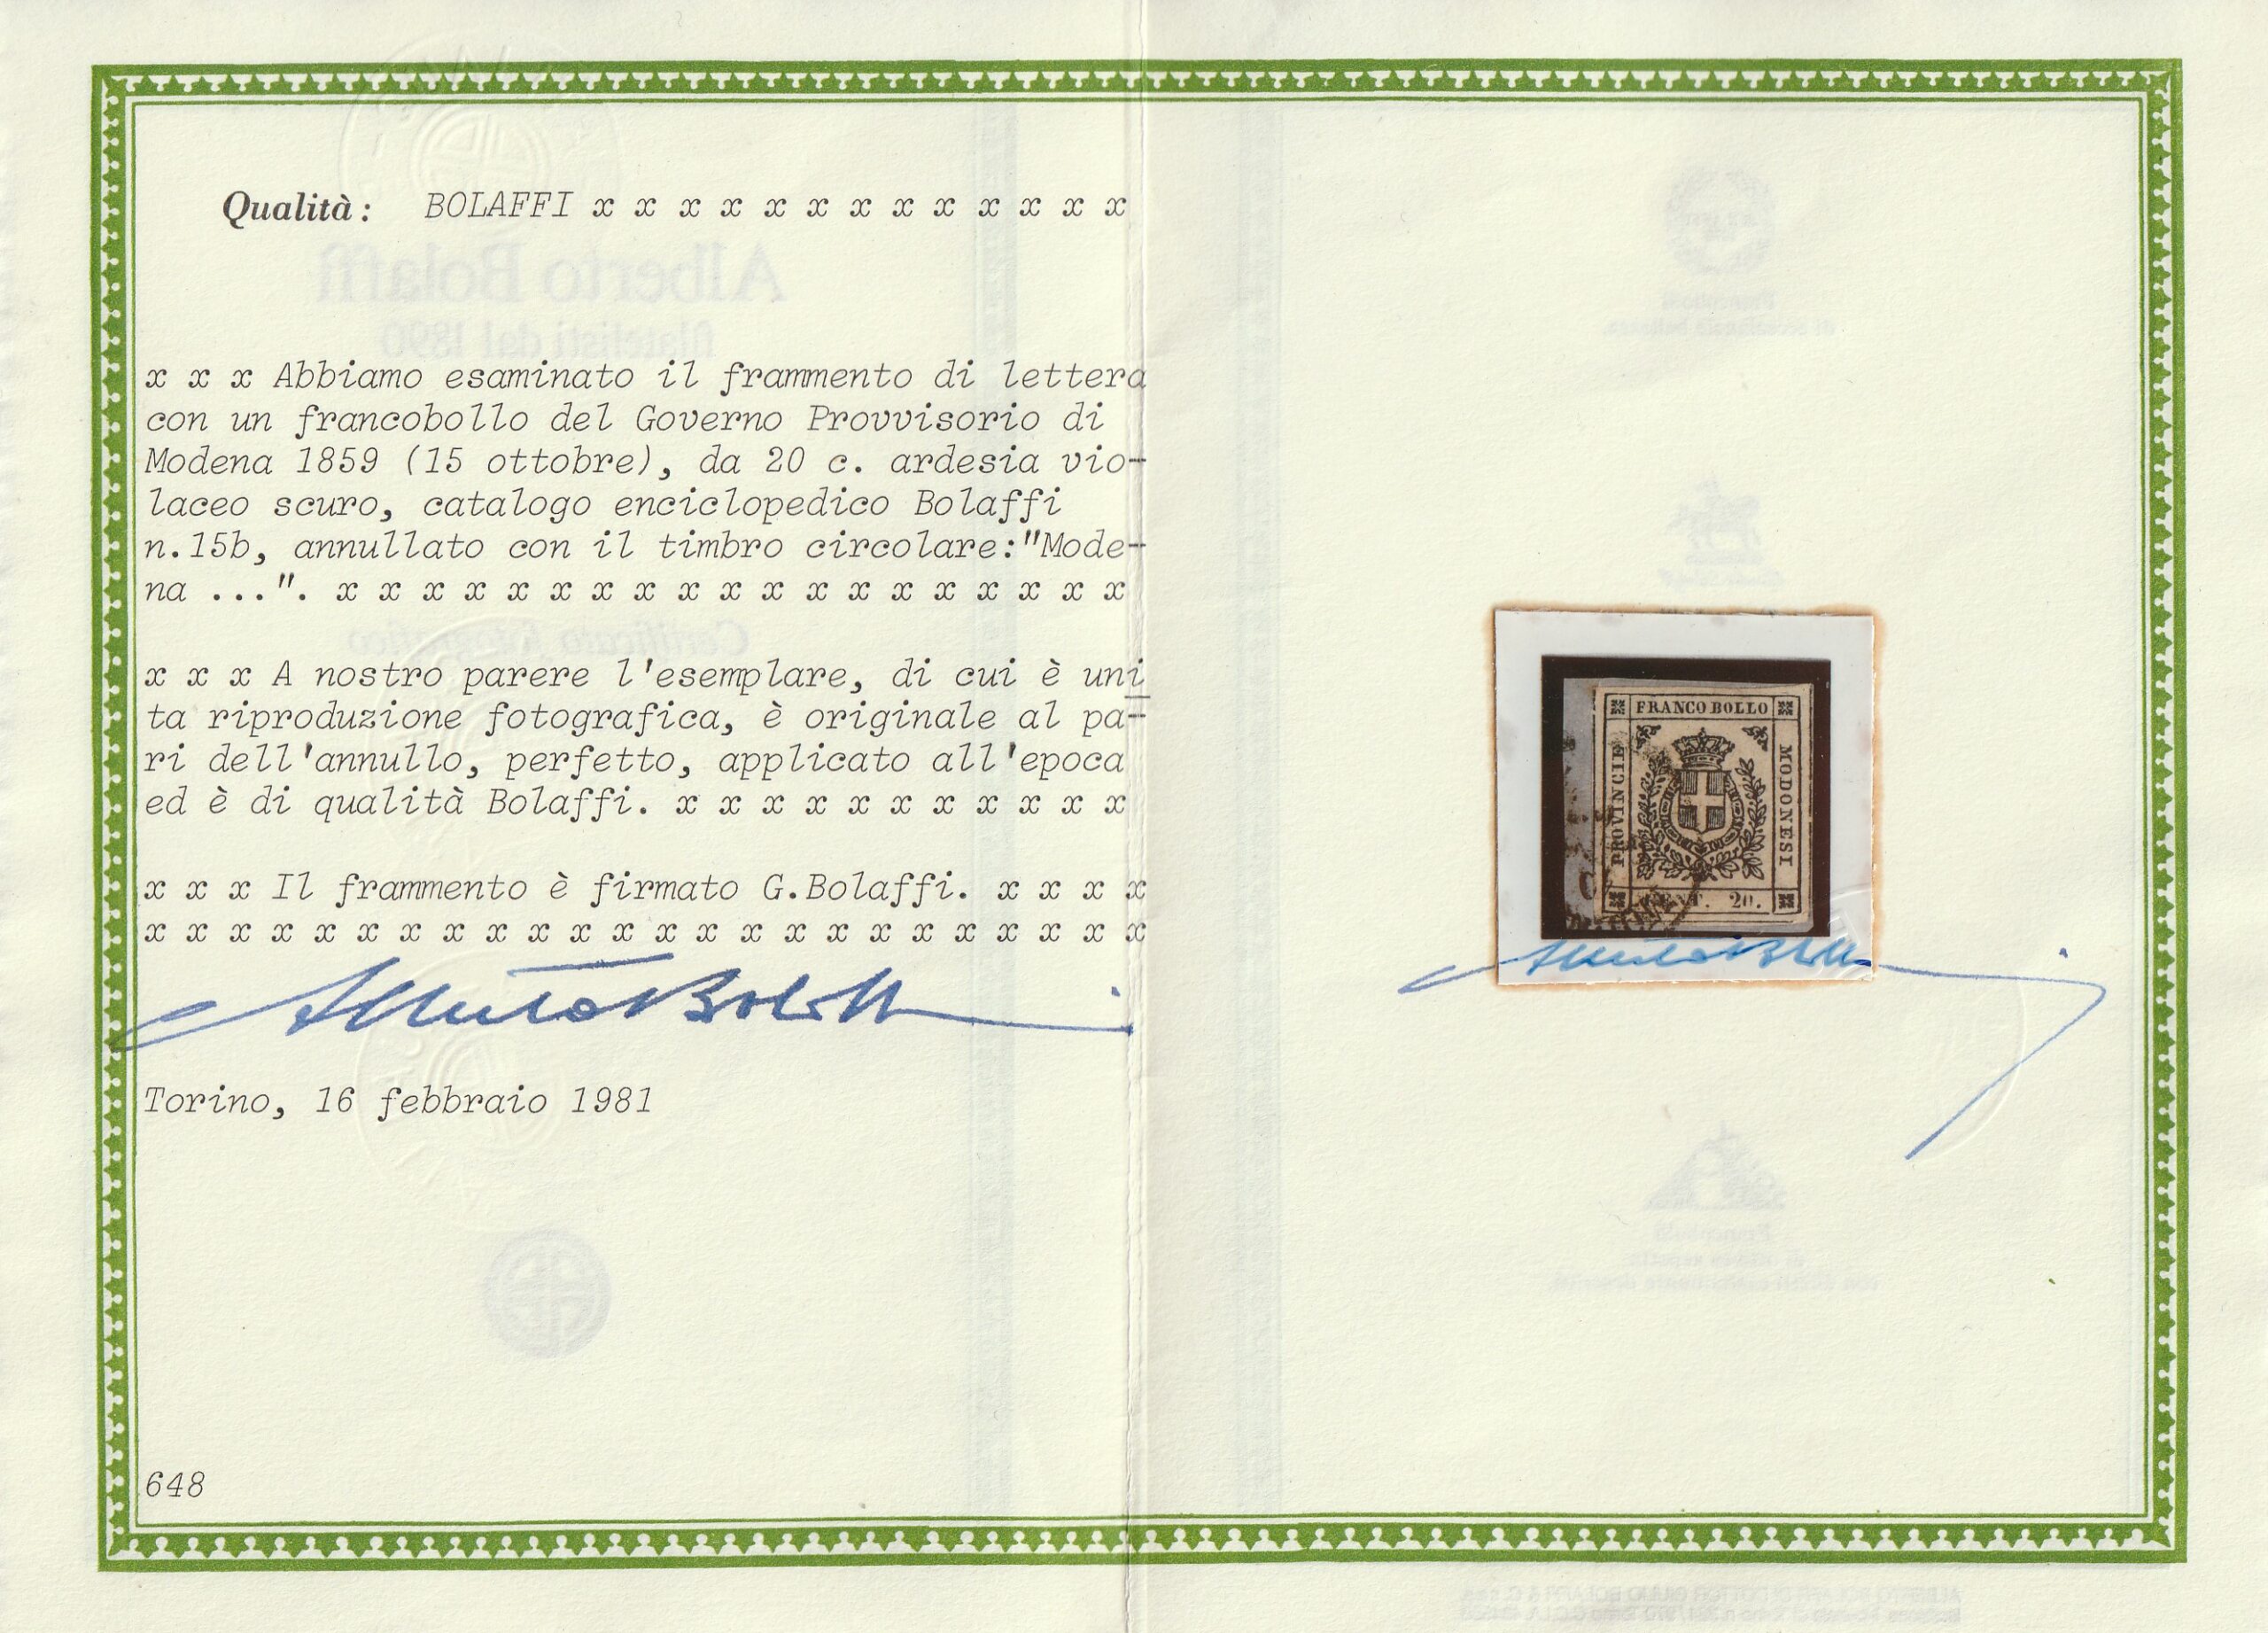 Qualità: BOLAFFI x x x x x x x x x x x x x
x x x Abbiamo esaminato il frammento di lettera
con un francobollo del Governo Provvisorio di
Modena 1859 (15 ottobre), da 20 c. ardesia vio-
laceo scuro, catalogo enciclopedico Bolaffi
n.15b, annullato con il timbro circolare:"Mode-
na ...". x x x x x x x x x x x x x x x x x x x
x x x A nostro parere l'esemplare, di cui è uni
ta riproduzione fotografica, è originale al pa-
ri dell'annullo, perfetto, applicato all'epoca
ed è di qualità Bolaffi. x x x x x x x x x x x
x x x Il frammento è firmato G.Bolaffi. x x x x
x x x x x x x x x x x x x x x x x x x x x x x x
Alberto Bolaffi
Torino, 16 febbraio 1981
648
FRANCO BOLLO
PROVINCIE
MODONESI
CENT. 20.
Alberto Bolaffi
Alberto Bolaffi
filatelisti dal 1890
Certificato fotografico